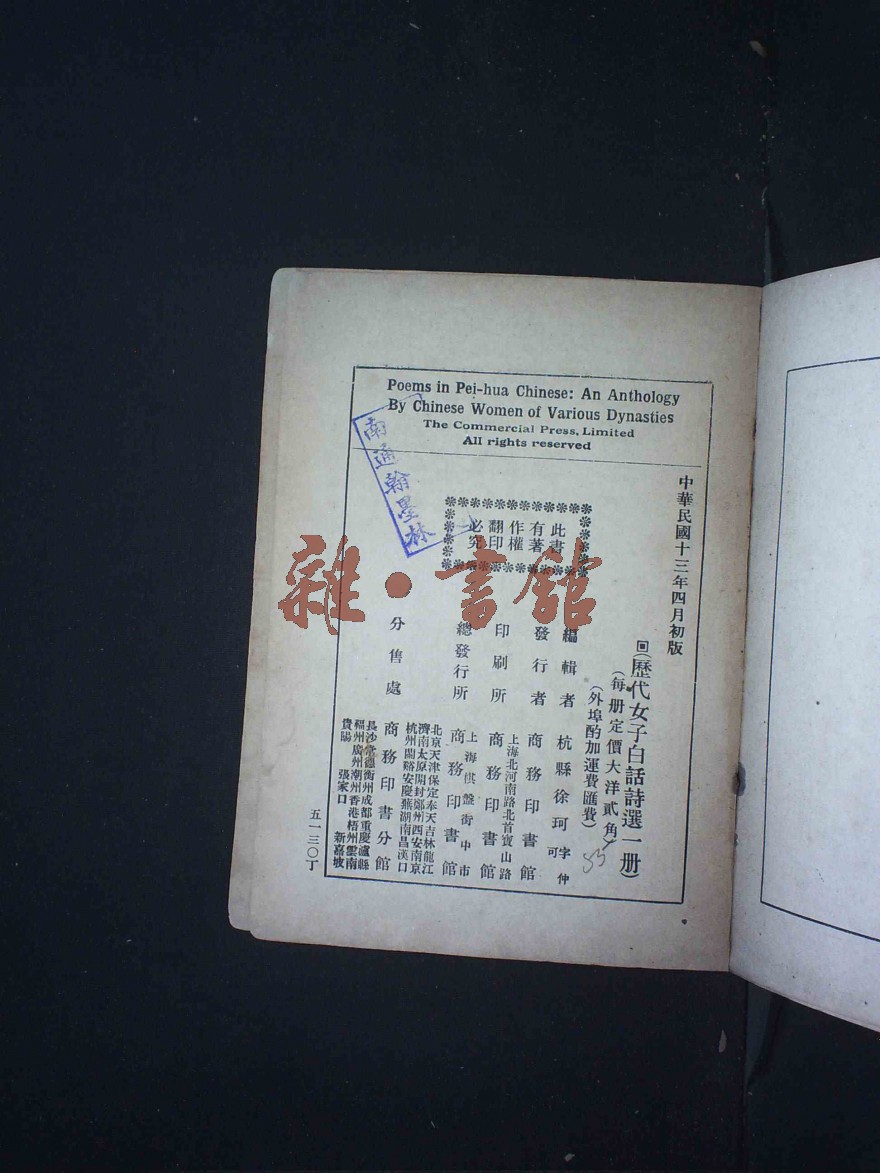 Poems in Pei-hua Chinese: An Anthology
By Chinese Women of Various Dynasties
The Commercial Press, Limited
All rights reserved
南通翰墨林
中華民國十三年四月初版
回(歷代女子白話詩選一册)
(每册定價大洋貳角)
(外埠酌加運費匯費)
85
此書
有著
作權
翻印
必究
編輯者 杭縣徐珂 字仲可
發行者 商務印書館
印刷所 上海北河南路北首寶山路 商務印書館
總發行所 上海棋盤街中市 商務印書館
分售處 商務印書分館
北京天津保定奉天吉林龍江
濟南太原開封鄭州西安南京
杭州蘭谿安慶蕪湖南昌漢口
長沙常德衡州成都重慶瀘縣
福州廣州潮州香港梧州雲南
貴陽 張家口 新嘉坡
五一三〇丁
雜·書館